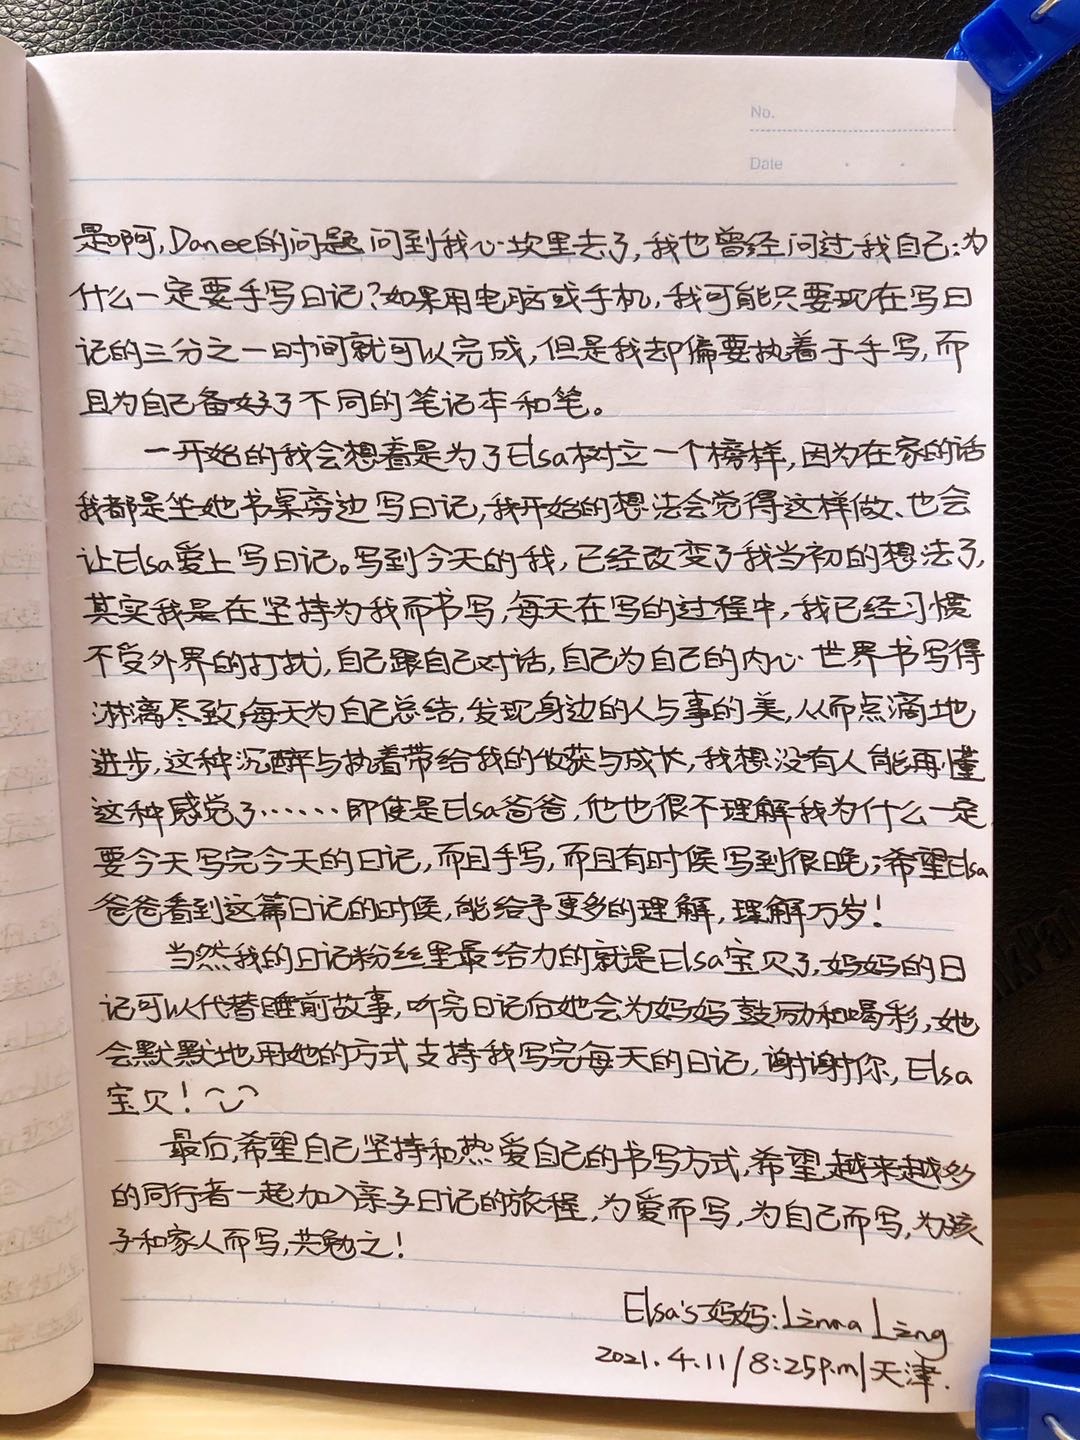 No.
Date
是啊,Danee的问题问到我心坎里去了,我也曾经问过我自己:为
什么一定要手写日记?如果用电脑或手机,我可能只要现在写日
记的三分之一时间就可以完成,但是我却偏要执着于手写,而
且为自己备好了不同的笔记本和笔。
一开始的我会想着是为了Elsa树立一个榜样,因为在家的话
我都是坐她书桌旁边写日记,我开始的想法会觉得这样做、也会
让Elsa爱上写日记。写到今天的我,已经改变了我当初的想法了,
其实我是在坚持为我而书写,每天在写的过程中,我已经习惯
不受外界的打扰,自己跟自己对话,自己为自己的内心世界书写得
淋漓尽致,每天为自己总结,发现身边的人与事的美,从而点滴地
进步,这种沉醉与执着带给我的收获与成长,我想没有人能再懂
这种感觉了……即使是Elsa爸爸,他也很不理解我为什么一定
要今天写完今天的日记,而且手写,而且有时候写到很晚;希望Elsa
爸爸看到这篇日记的时候,能给予更多的理解,理解万岁!
当然我的日记粉丝里最给力的就是Elsa宝贝了,妈妈的日
记可以代替睡前故事,听完日记后她会为妈妈鼓励和喝彩,她
会默默地用她的方式支持我写完每天的日记,谢谢你,Elsa
宝贝!
最后,希望自己坚持和热爱自己的书写方式,希望越来越多
的同行者一起加入亲子日记的旅程,为爱而写,为自己而写,为孩
子和家人而写,共勉之!
Elsa's妈妈:Linna Ling
2021.4.11/8:25p.m/天津.